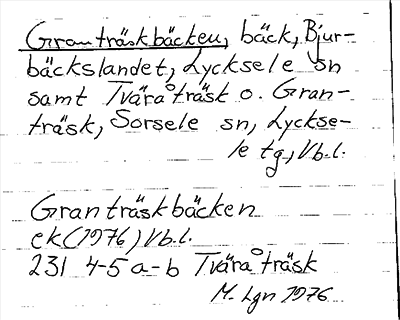 Granträskbäcken, bäck, Bjur-
bäckslandet, Lycksele sn
samt Tväråträsk o. Gran-
träsk, Sorsele sn, Lyckse-
le tg, Vb.l.
Granträskbäcken
ek (1976) Vb.l.
231 4-5 a-b Tväråträsk
M. Lgn 1976